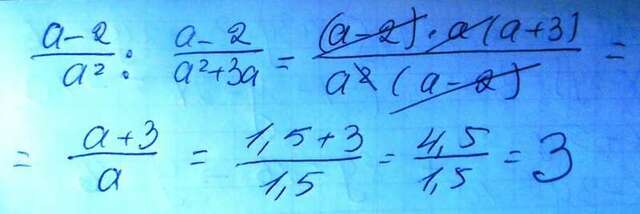 (a-2)/a² : (a-2)/(a²+3a) = ((a-2)·a(a+3))/(a²(a-2)) =
= (a+3)/a = (1,5+3)/1,5 = 4,5/1,5 = 3